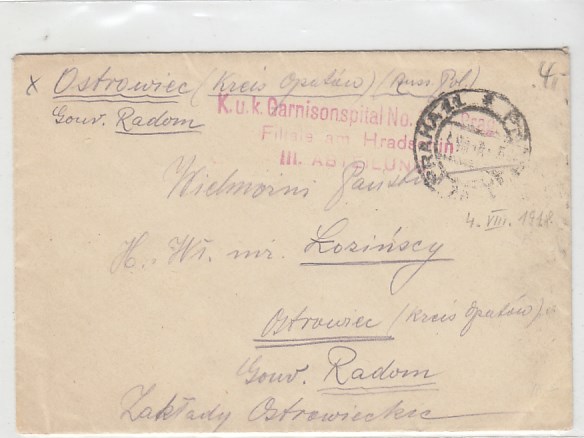 x Ostrowiec (Kreis Opatów) (Russ. Pol)
Gouv. Radom
4.-
K.u.k. Garnisonspital No.
Filiale am Hradschin
III. ABTEILUNG
PRAHA 11
Wielmożni Państwo
H. Wł.
Łozińscy
4. VIII. 1918.
Ostrowiec (Kreis Opatów)
Gouv. Radom
Zakłady Ostrowieckie